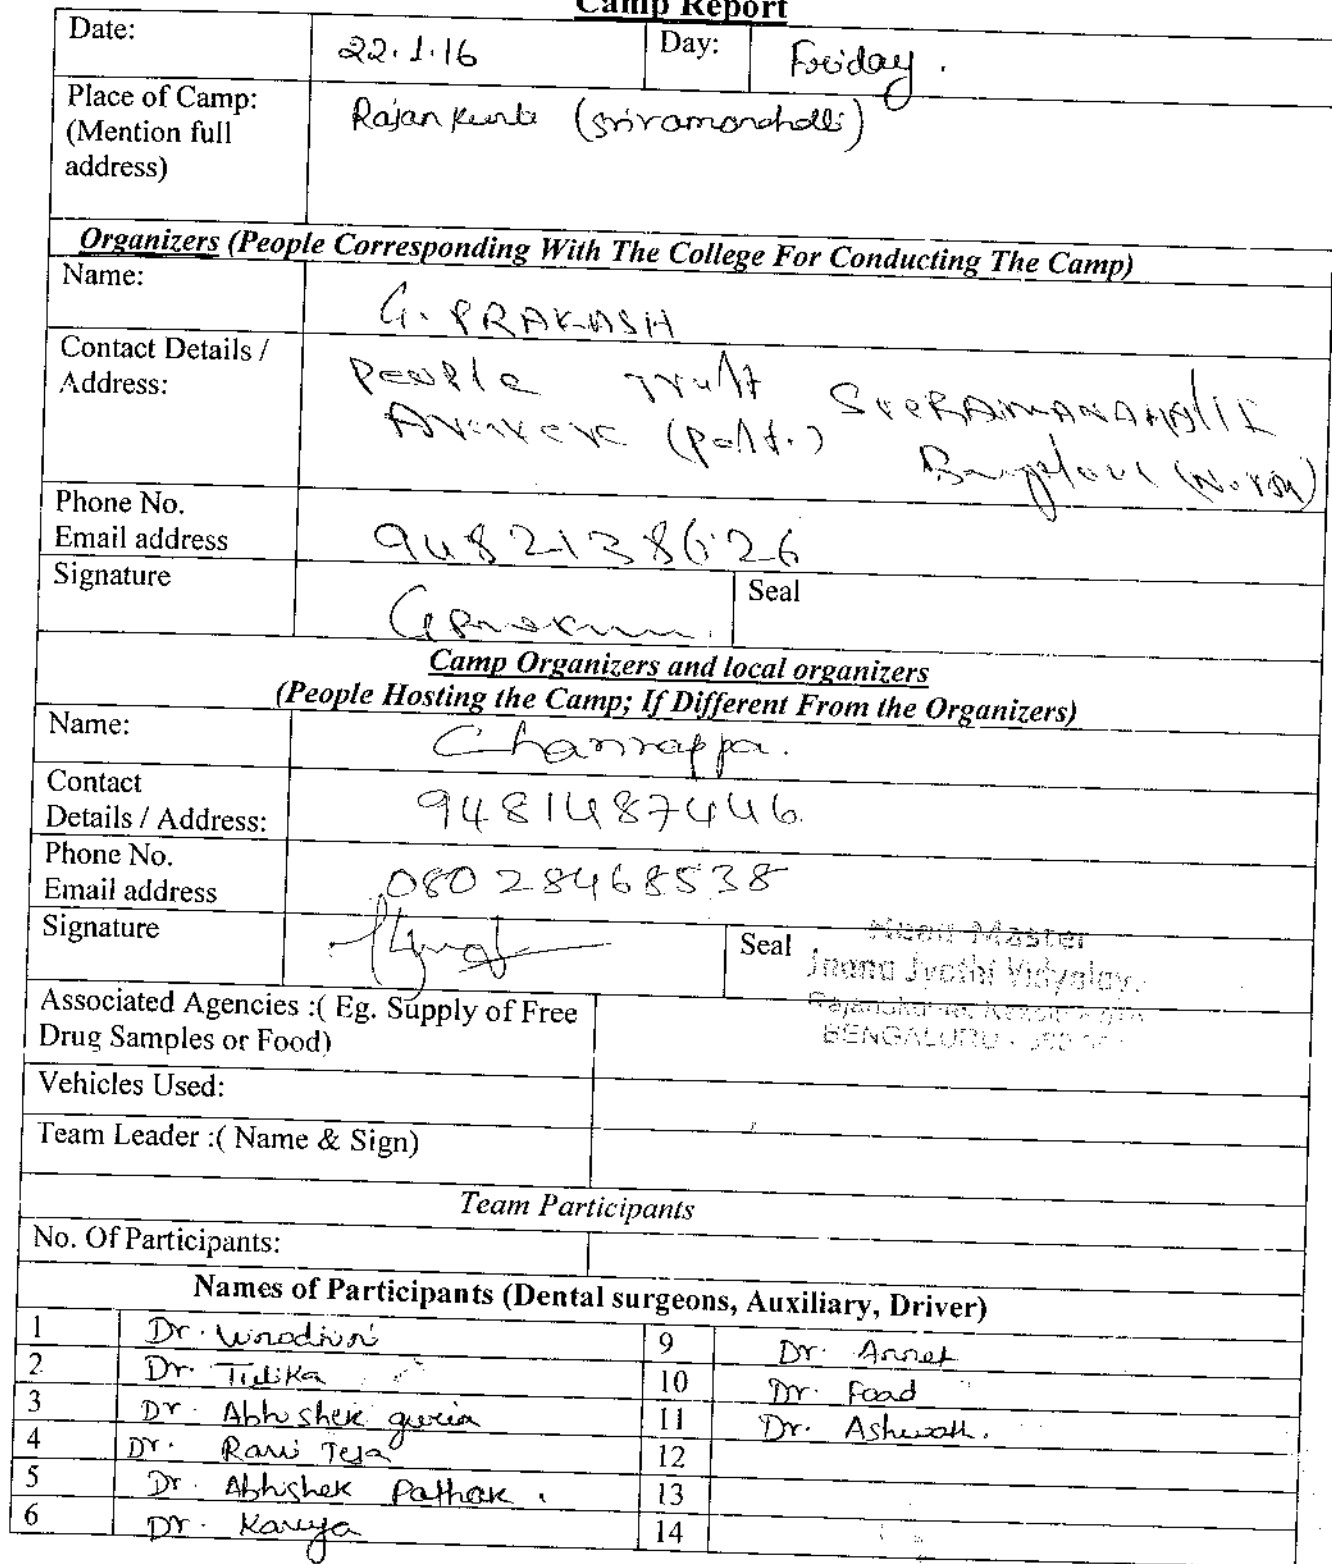 Camp Report
Date: 22.1.16 Day: Friday.
Place of Camp: Rajankunte (sriramanahalli)
(Mention full
address)
Organizers (People Corresponding With The College For Conducting The Camp)
Name: G. PRAKASH
Contact Details / People Trust SreeRAMANAHALLI
Address: (Post.) Bangalore (North)
Phone No.
Email address 9482138626
Signature Seal
Camp Organizers and local organizers
(People Hosting the Camp; If Different From the Organizers)
Name: Channappa.
Contact
Details / Address: 9481487446
Phone No.
Email address 080 28468538
Signature Seal Head Master
Jnana Jyothi Vidyalay.
BENGALURU
Associated Agencies :( Eg. Supply of Free
Drug Samples or Food)
Vehicles Used:
Team Leader :( Name & Sign)
Team Participants
No. Of Participants:
Names of Participants (Dental surgeons, Auxiliary, Driver)
1 Dr. 9 Dr. Annet
2 Dr. Tulika 10 Dr. Foad
3 Dr. Abhishek guria 11 Dr. Ashwath.
4 Dr. Ravi Teja 12
5 Dr. Abhishek Pathak. 13
6 Dr. Kavya 14